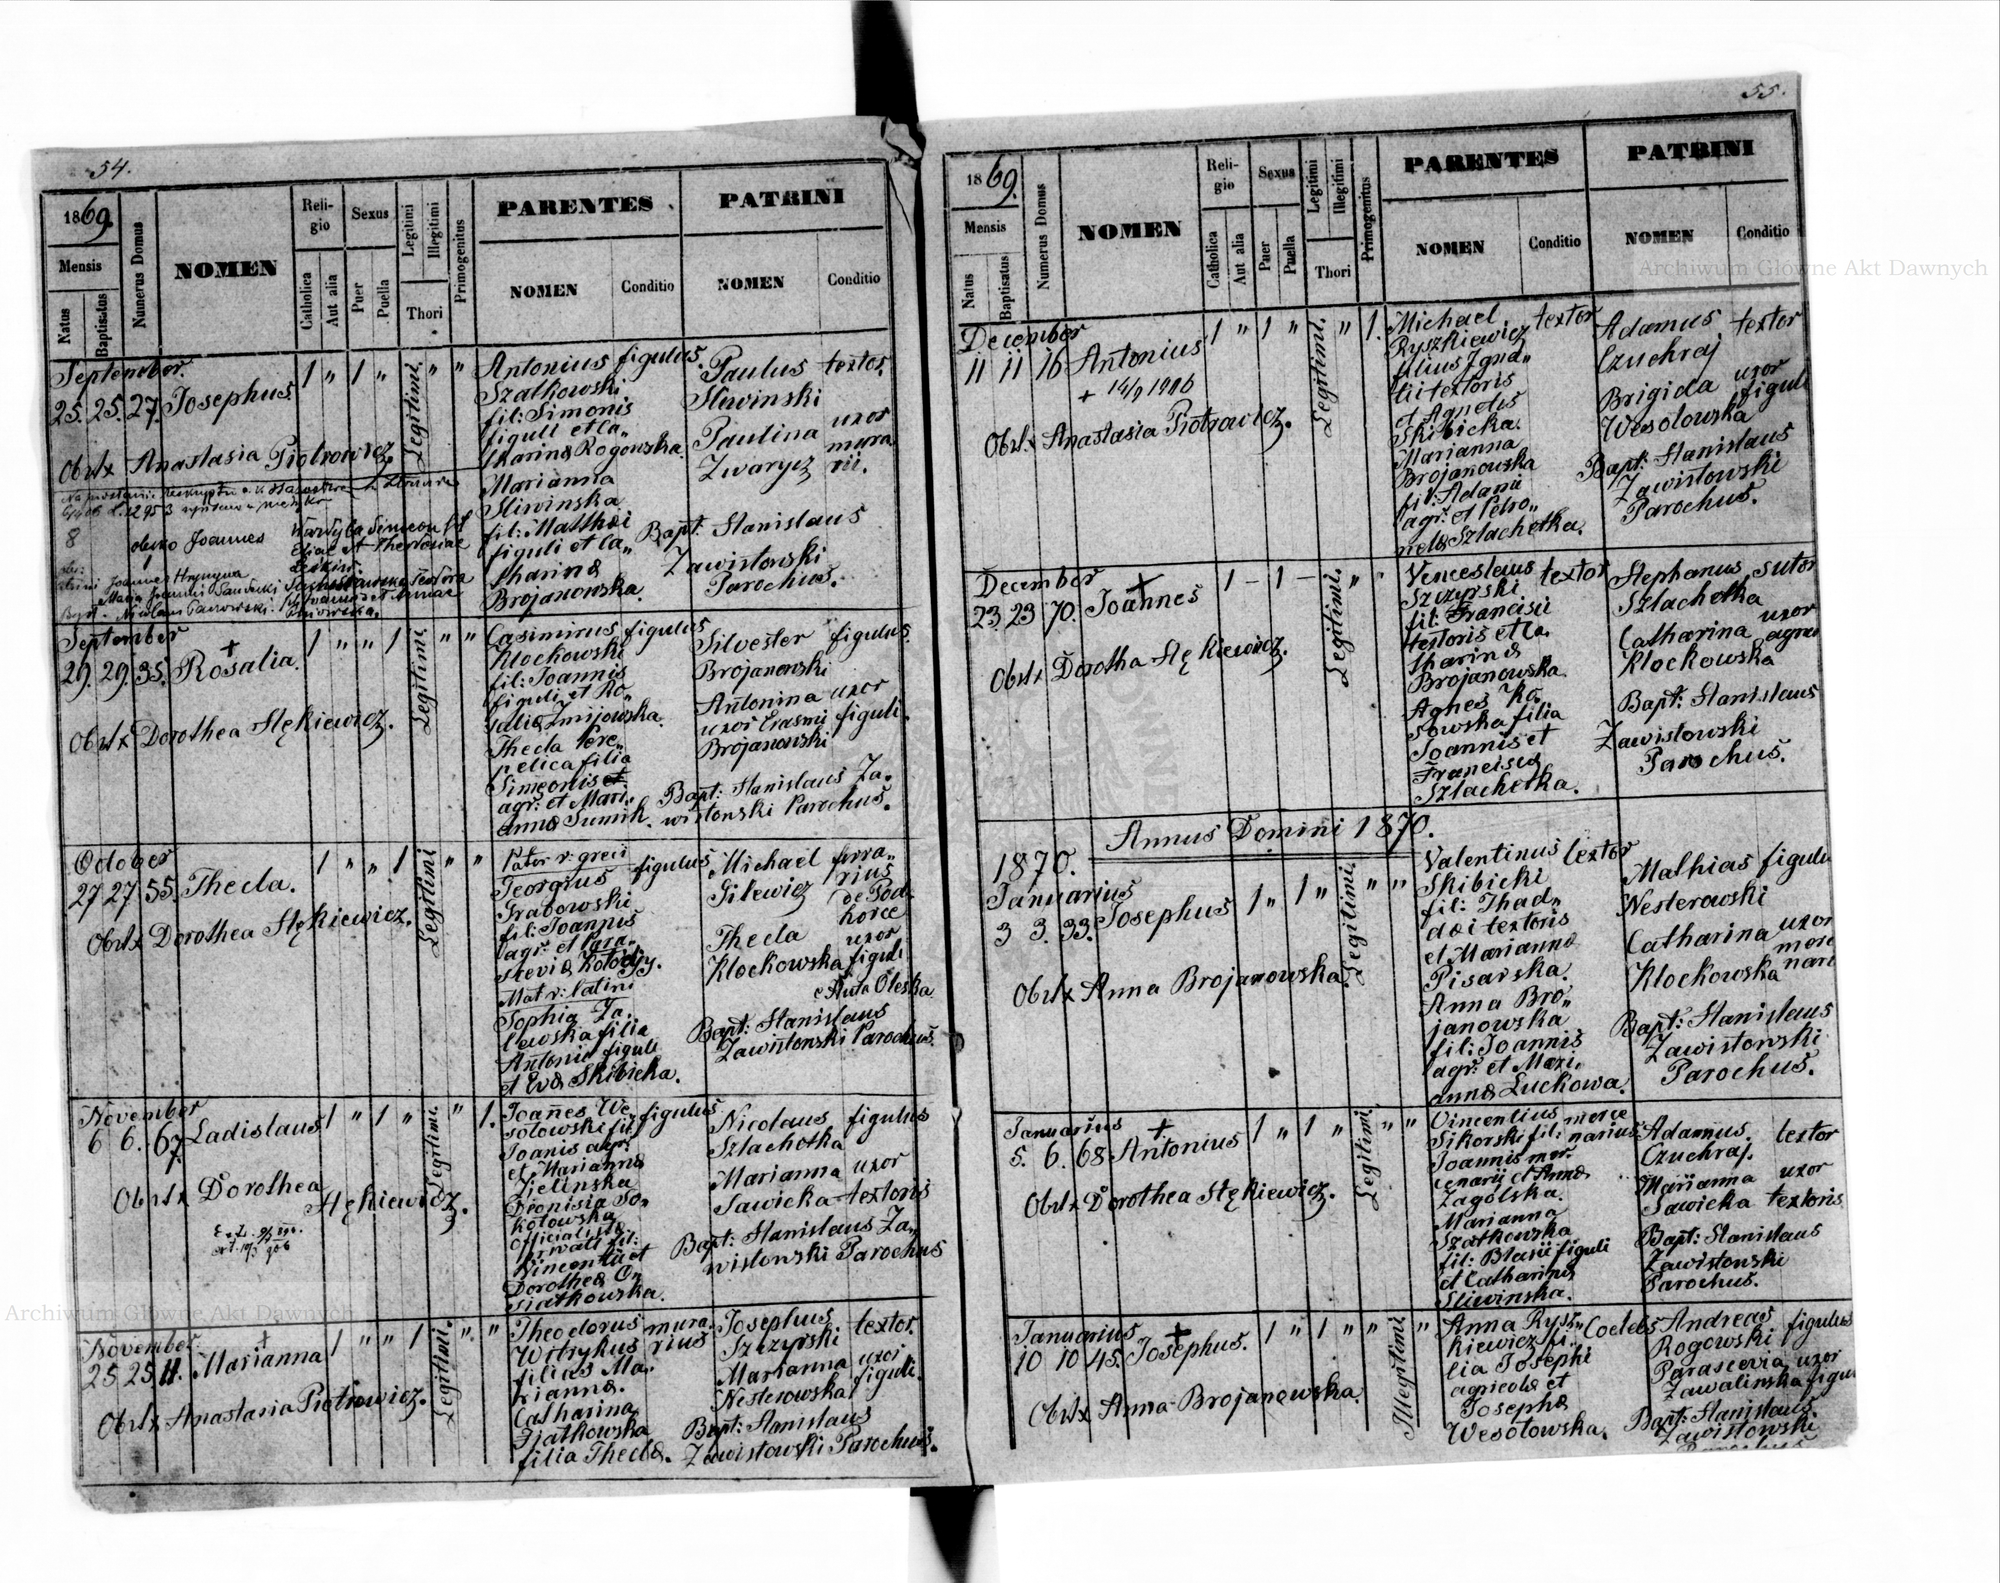 54.
1869.
Mensis
Natus
Baptisatus
Numerus Domus
NOMEN
Religio
Catholica
Aut alia
Sexus
Puer
Puella
Legitimi
Illegitimi
Thori
Primogenitus
PARENTES
NOMEN
Conditio
PATRINI
NOMEN
Conditio
September
25. 25. 27. Josephus 1 " 1 " Legitimi " "
Obst Anastasia Piotrowicz.
Antonius figulus.
Szatkowski.
fil: Simonis
figuli et Ca„
tharinæ Rogowska.
Marianna
Sliwinska
fil: Matthæi
figuli et Ca„
tharinæ
Brojanowska.
Paulus textor.
Sliwinski
Paulina uxor
Zwarycz mura
rii.
Bapt: Stanislaus
Zawistowski
Parochus.
8
Joannes
Simeon fil
Eliae et Theodosiae
Joannes Hrynyna
September
29. 29. 35. Rosalia. 1 " " 1 Legitimi " "
Obst Dorothea Stękiewicz.
Casimirus figulus
Klockowski
fil: Joannis
figuli et Ro„
saliæ Zmijowska.
Thecla Pere„
pelica filia
Simeonis et
agr: et Mari„
annæ Sumik.
Silvester figulus.
Brojanowski
Antonina uxor
uxor Erasmi figuli.
Brojanowski
Bapt: Stanislaus Za„
wistowski Parochus.
October
27 27 55. Thecla. 1 " " 1 Legitimi " "
Obst Dorothea Stękiewicz.
Pater r: græci
Georgius figulus
Grabowski
fil: Joannis
agr: et Para„
sceviæ Kołodzy.
Mat r: latini
Sophia Za„
lewska filia
Antonii figuli
et Evæ Skibicka.
Michael ferra„
Gilewicz rius
de Pod
horce
Thecla uxor
Klockowska figuli
Oleska
Bapt: Stanislaus
Zawistowski Parochus.
November
6 6. 67. Ladislaus 1 " 1 " Legitimi " 1.
Obst Dorothea
Stękiewicz.
Joañes We„ figulus
sołowski fil:
Joanis agr:
et Mariannæ
Zielinska
Dionisia So„
kołowska
officialistæ
privati fil:
Vincentii et
Dorotheæ On
siatkowska.
Nicolaus figulus
Szlachotka
Marianna uxor
Sawicka textoris
Bapt: Stanislaus Za„
wistowski Parochus
November
25 25 11. Marianna 1 " " 1 Legitimi. " "
Obst Anastasia Piotrowicz.
Theodorus mura„
Witrykus rius
filius Ma„
riannæ.
Catharina
Zjatkowska
filia Theclæ.
Josephus textor.
Szczyrski
Marianna uxor
Nesterowska figuli.
Bapt: Stanislaus
Zawistowski Parochus.
55.
1869.
Mensis
Natus
Baptisatus
Numerus Domus
NOMEN
Religio
Catholica
Aut alia
Sexus
Puer
Puella
Legitimi
Illegitimi
Thori
Primogenitus
PARENTES
NOMEN
Conditio
PATRINI
NOMEN
Conditio
December
11 11 16 Antonius 1 " 1 " Legitimi. " 1.
Obst. Anastasia Piotrowicz.
Michael textor
Ryszkiewicz
filius Igna„
tii textoris
et Agnetis
Skibicka.
Marianna
Brojanowska
fil: Adami
agr: et Petro„
nelæ Szlachotka.
Adamus textor
Czuchraj
Brigida uxor
Wesołowska figuli
Bapt: Stanislaus
Zawistowski
Parochus.
December
23. 23 70. Joannes 1 – 1 – Legitimi. " "
Obst Dorotha Stękiewicz.
Venceslaus textor
Szczyrski.
fil: Francisci
textoris et Ca„
tharinæ
Brojanowska.
Agnes Ko„
sowska filia
Joannis et
Franciscæ
Szlachotka.
Stephanus sutor
Szlachotka
Catharina uxor
Klockowska
Bapt: Stanislaus
Zawistowski
Parochus.
Annus Domini 1870.
1870.
Januarius
3 3. 33. Josephus 1 " 1 " Legitimi. " "
Obst Anna Brojanowska.
Valentinus textor
Skibicki
fil: Thad„
dæi textoris
et Mariannæ
Pisarska.
Anna Bro„
janowska
fil: Joannis
agr: et Mari„
annæ Luckowa.
Mathias figulus
Nesterowski
Catharina uxor
Klockowska merc
narii
Bapt: Stanislaus
Zawistowski
Parochus.
Januarius
5. 6. 68 Antonius 1 " 1 " Legitimi " "
Obst Dorothea Stękiewicz.
Vincentius merce
Sikorski fil: narius
Joannis mer„
cenarii et Annæ
Zagolska.
Marianna
Szatkowska
fil: Blasii figuli
et Catharinæ
Sliwinska.
Adamus. textor
Czuchraj.
Marianna uxor
Sawicka textoris
Bapt: Stanislaus
Zawistowski
Parochus.
Januarius
10 10 45. Josephus. 1 " 1 " " Illegitimi "
Obst Anna Brojanowska
Anna Rysz„ Coelebs
kiewicz fi„
lia Josephi
agricolæ et
Josephæ
Wesołowska.
Andreas figulus
Rogowski
Parascevia uxor
Zawalinska figuli
Bapt: Stanislaus.
Zawistowski
Parochus
Archiwum Główne Akt Dawnych
Archiwum Główne Akt Dawnych